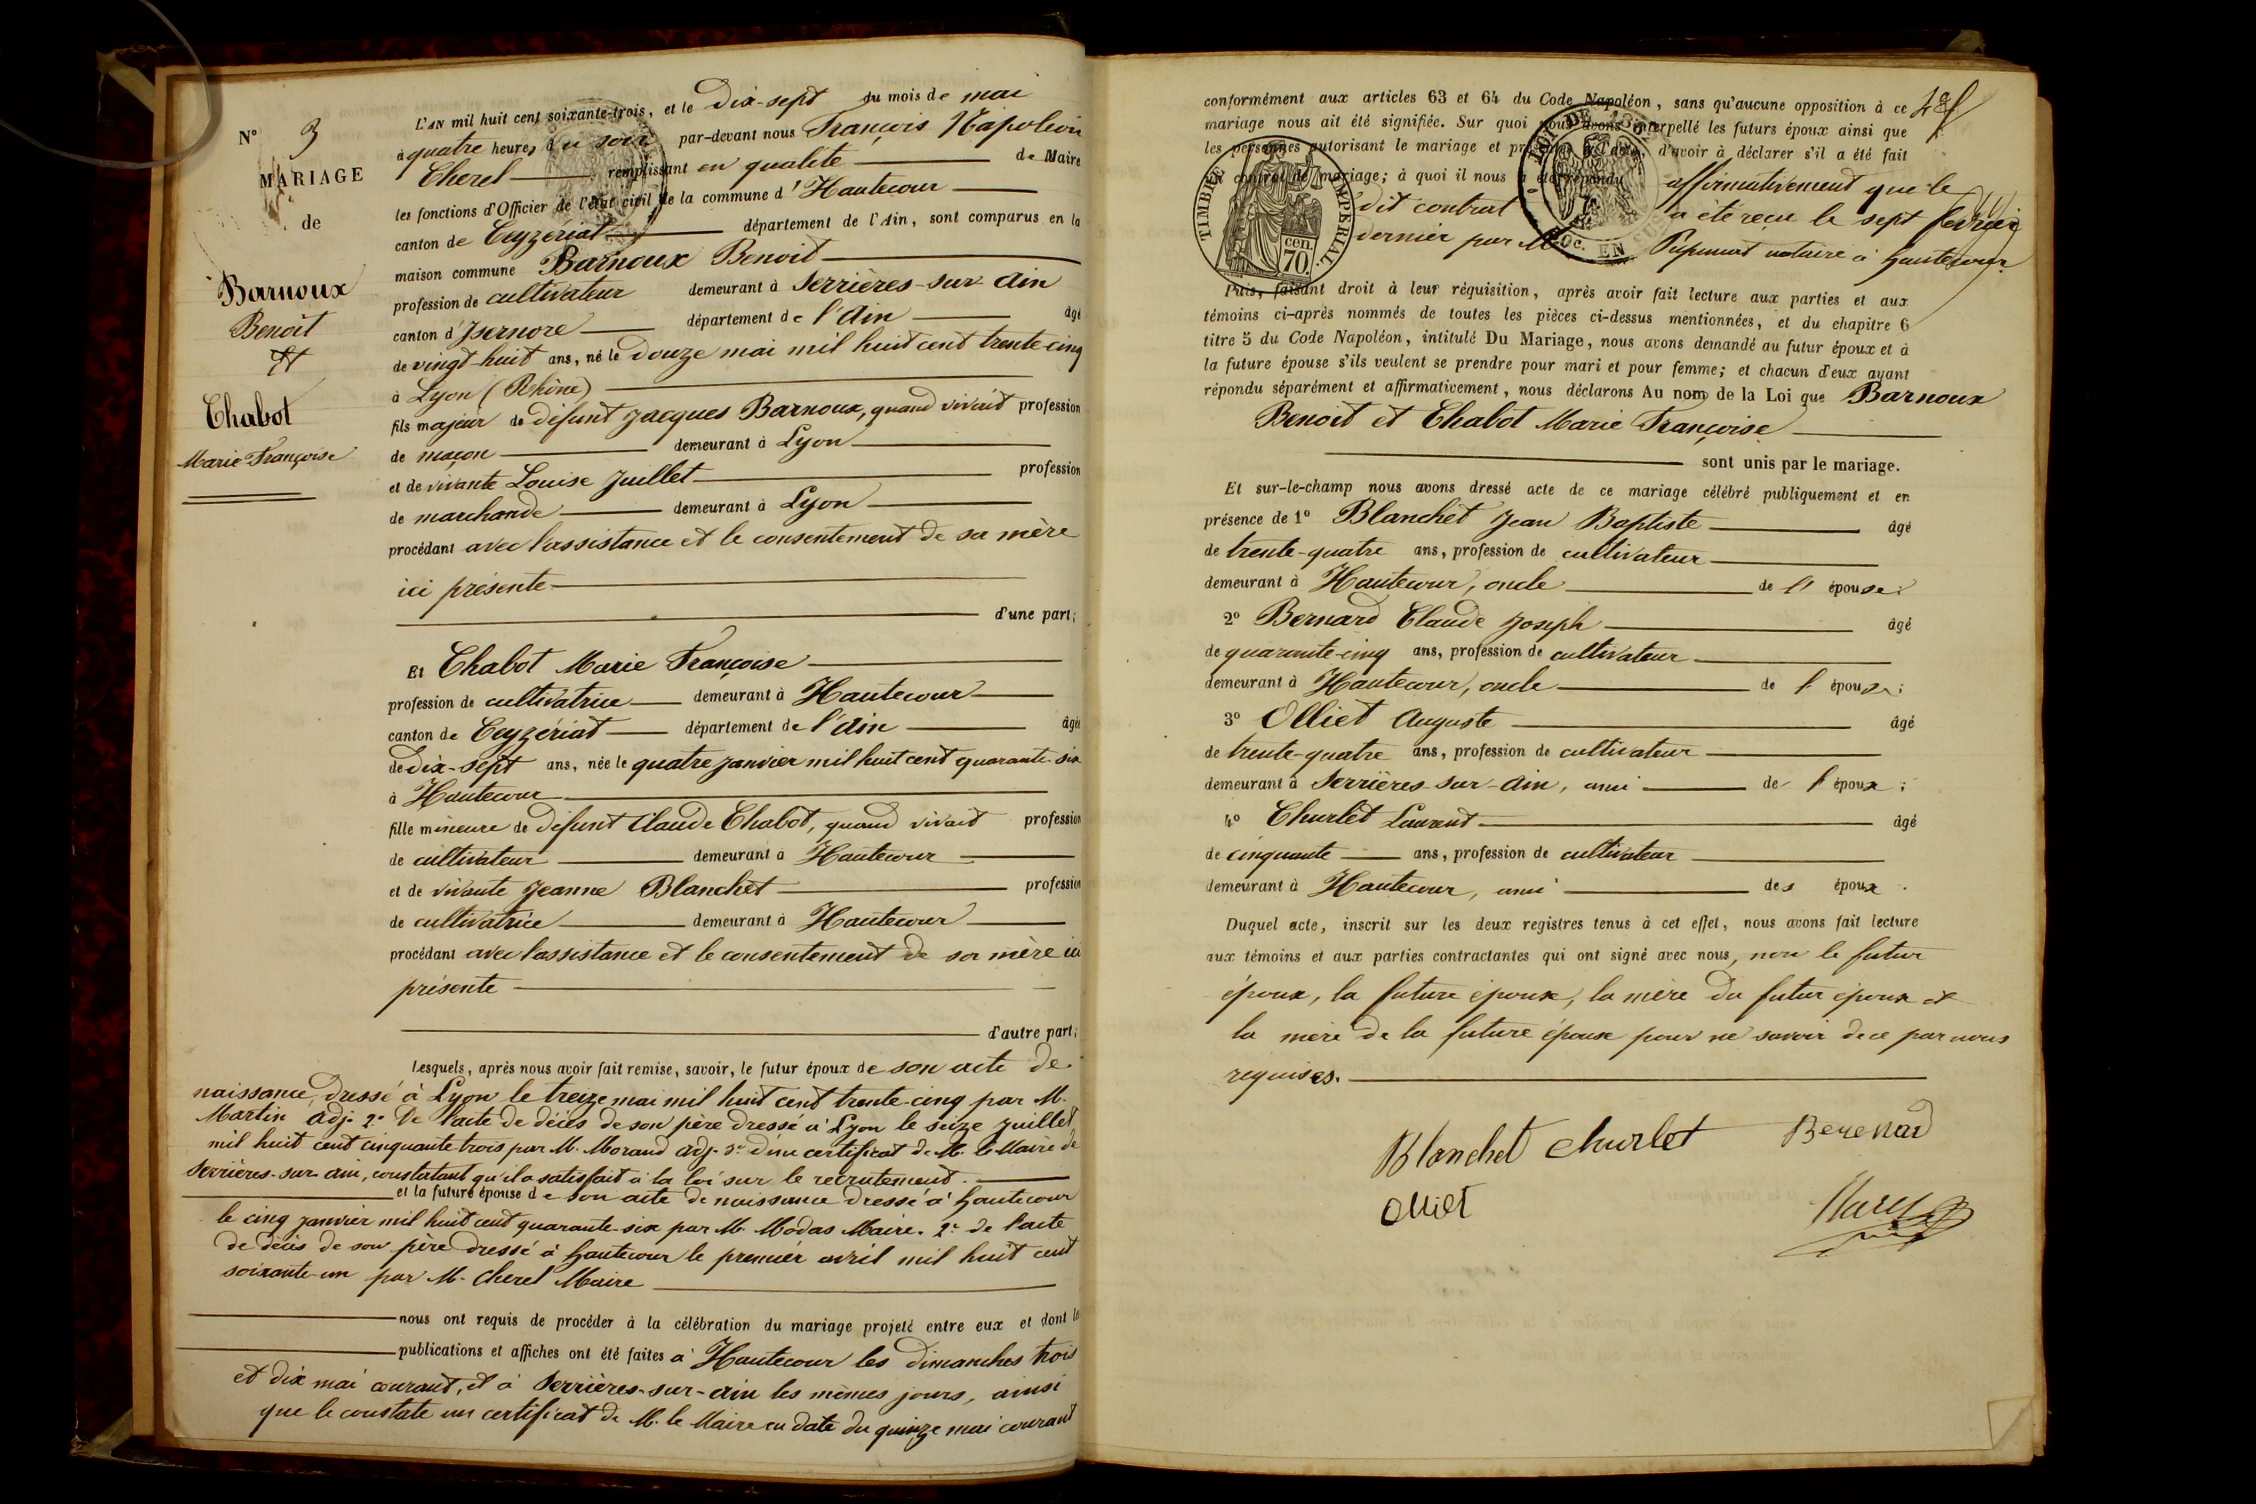 N° 3
MARIAGE
de
Barnoux
Benoit
et
Chabot
Marie Françoise
L'AN mil huit cent soixante-trois, et le Dix-sept du mois de mai
à quatre heures du soir par-devant nous François Napoléon
Cherel remplissant en qualité de Maire
les fonctions d'Officier de l'état civil de la commune d'Hautecour
canton de Ceyzériat département de l'Ain, sont comparus en la
maison commune Barnoux Benoit
profession de cultivateur demeurant à Serrières-sur-Ain
canton d'Isernore département de l'Ain âgé
de vingt-huit ans, né le douze mai mil huit cent trente-cinq
à Lyon (Rhône)
fils majeur de défunt Jacques Barnoux, quand vivait profession
de maçon demeurant à Lyon
et de vivante Louise Juillet profession
de marchande demeurant à Lyon
procédant avec l'assistance et le consentement de sa mère
ici présente
d'une part;
Et Chabot Marie Françoise
profession de cultivatrice demeurant à Hautecour
canton de Ceyzériat département de l'Ain âgée
de dix-sept ans, née le quatre janvier mil huit cent quarante-six
à Hautecour
fille mineure de défunt Claude Chabot, quand vivait profession
de cultivateur demeurant à Hautecour
et de vivante Jeanne Blanchet profession
de cultivatrice demeurant à Hautecour
procédant avec l'assistance et le consentement de sa mère ici
présente
d'autre part;
Lesquels, après nous avoir fait remise, savoir, le futur époux de son acte de
naissance, dressé à Lyon le treize mai mil huit cent trente-cinq par M.
Martin adj. 2° De l'acte de décès de son père dressé à Lyon le seize juillet
mil huit cent cinquante-trois par M. Morand adj. 3° d'un certificat de M. le Maire de
Serrières-sur-ain, constatant qu'il a satisfait à la loi sur le recrutement.
et la future épouse de son acte de naissance dressé à hautecour
le cinq janvier mil huit cent quarante-six par M. Modas Maire. 2° de l'acte
de décès de son père dressé à hautecour le premier avril mil huit cent
soixante-un par M. Cherel Maire
nous ont requis de procéder à la célébration du mariage projeté entre eux et dont les
publications et affiches ont été faites à Hautecour les dimanches trois
et dix mai courant, et à Serrières-sur-ain les mêmes jours, ainsi
que le constate un certificat de M. le Maire en date du quinze mai courant
conformément aux articles 63 et 64 du Code Napoléon, sans qu'aucune opposition à ce
mariage nous ait été signifiée. Sur quoi nous avons interpellé les futurs époux ainsi que
les personnes autorisant le mariage et présentes à l'acte, d'avoir à déclarer s'il a été fait
un contrat de mariage; à quoi il nous a été répondu affirmativement que le
dit contrat a été reçu le sept février
dernier par M. notaire à hautecour
TIMBRE IMPERIAL.
cen.
70.
Puis, faisant droit à leur réquisition, après avoir fait lecture aux parties et aux
témoins ci-après nommés de toutes les pièces ci-dessus mentionnées, et du chapitre 6
titre 5 du Code Napoléon, intitulé Du Mariage, nous avons demandé au futur époux et à
la future épouse s'ils veulent se prendre pour mari et pour femme; et chacun d'eux ayant
répondu séparément et affirmativement, nous déclarons Au nom de la Loi que Barnoux
Benoit et Chabot Marie Françoise
sont unis par le mariage.
Et sur-le-champ nous avons dressé acte de ce mariage célébré publiquement et en
présence de 1° Blanchet Jean Baptiste âgé
de trente-quatre ans, profession de cultivateur
demeurant à Hautecour, oncle de l'épouse;
2° Bernard Claude Joseph âgé
de quarante-cinq ans, profession de cultivateur
demeurant à Hautecour, oncle de l'épouse;
3° Olliet Auguste âgé
de trente-quatre ans, profession de cultivateur
demeurant à Serrières-sur-Ain, ami de l'époux;
4° Churlet Laurent âgé
de cinquante ans, profession de cultivateur
demeurant à Hautecour, ami des époux.
Duquel acte, inscrit sur les deux registres tenus à cet effet, nous avons fait lecture
aux témoins et aux parties contractantes qui ont signé avec nous, non le futur
époux, la future épouse, la mère du futur époux et
la mère de la future épouse pour ne savoir de ce par nous
requises.
Blanchet Churlet Berenard
Olliet